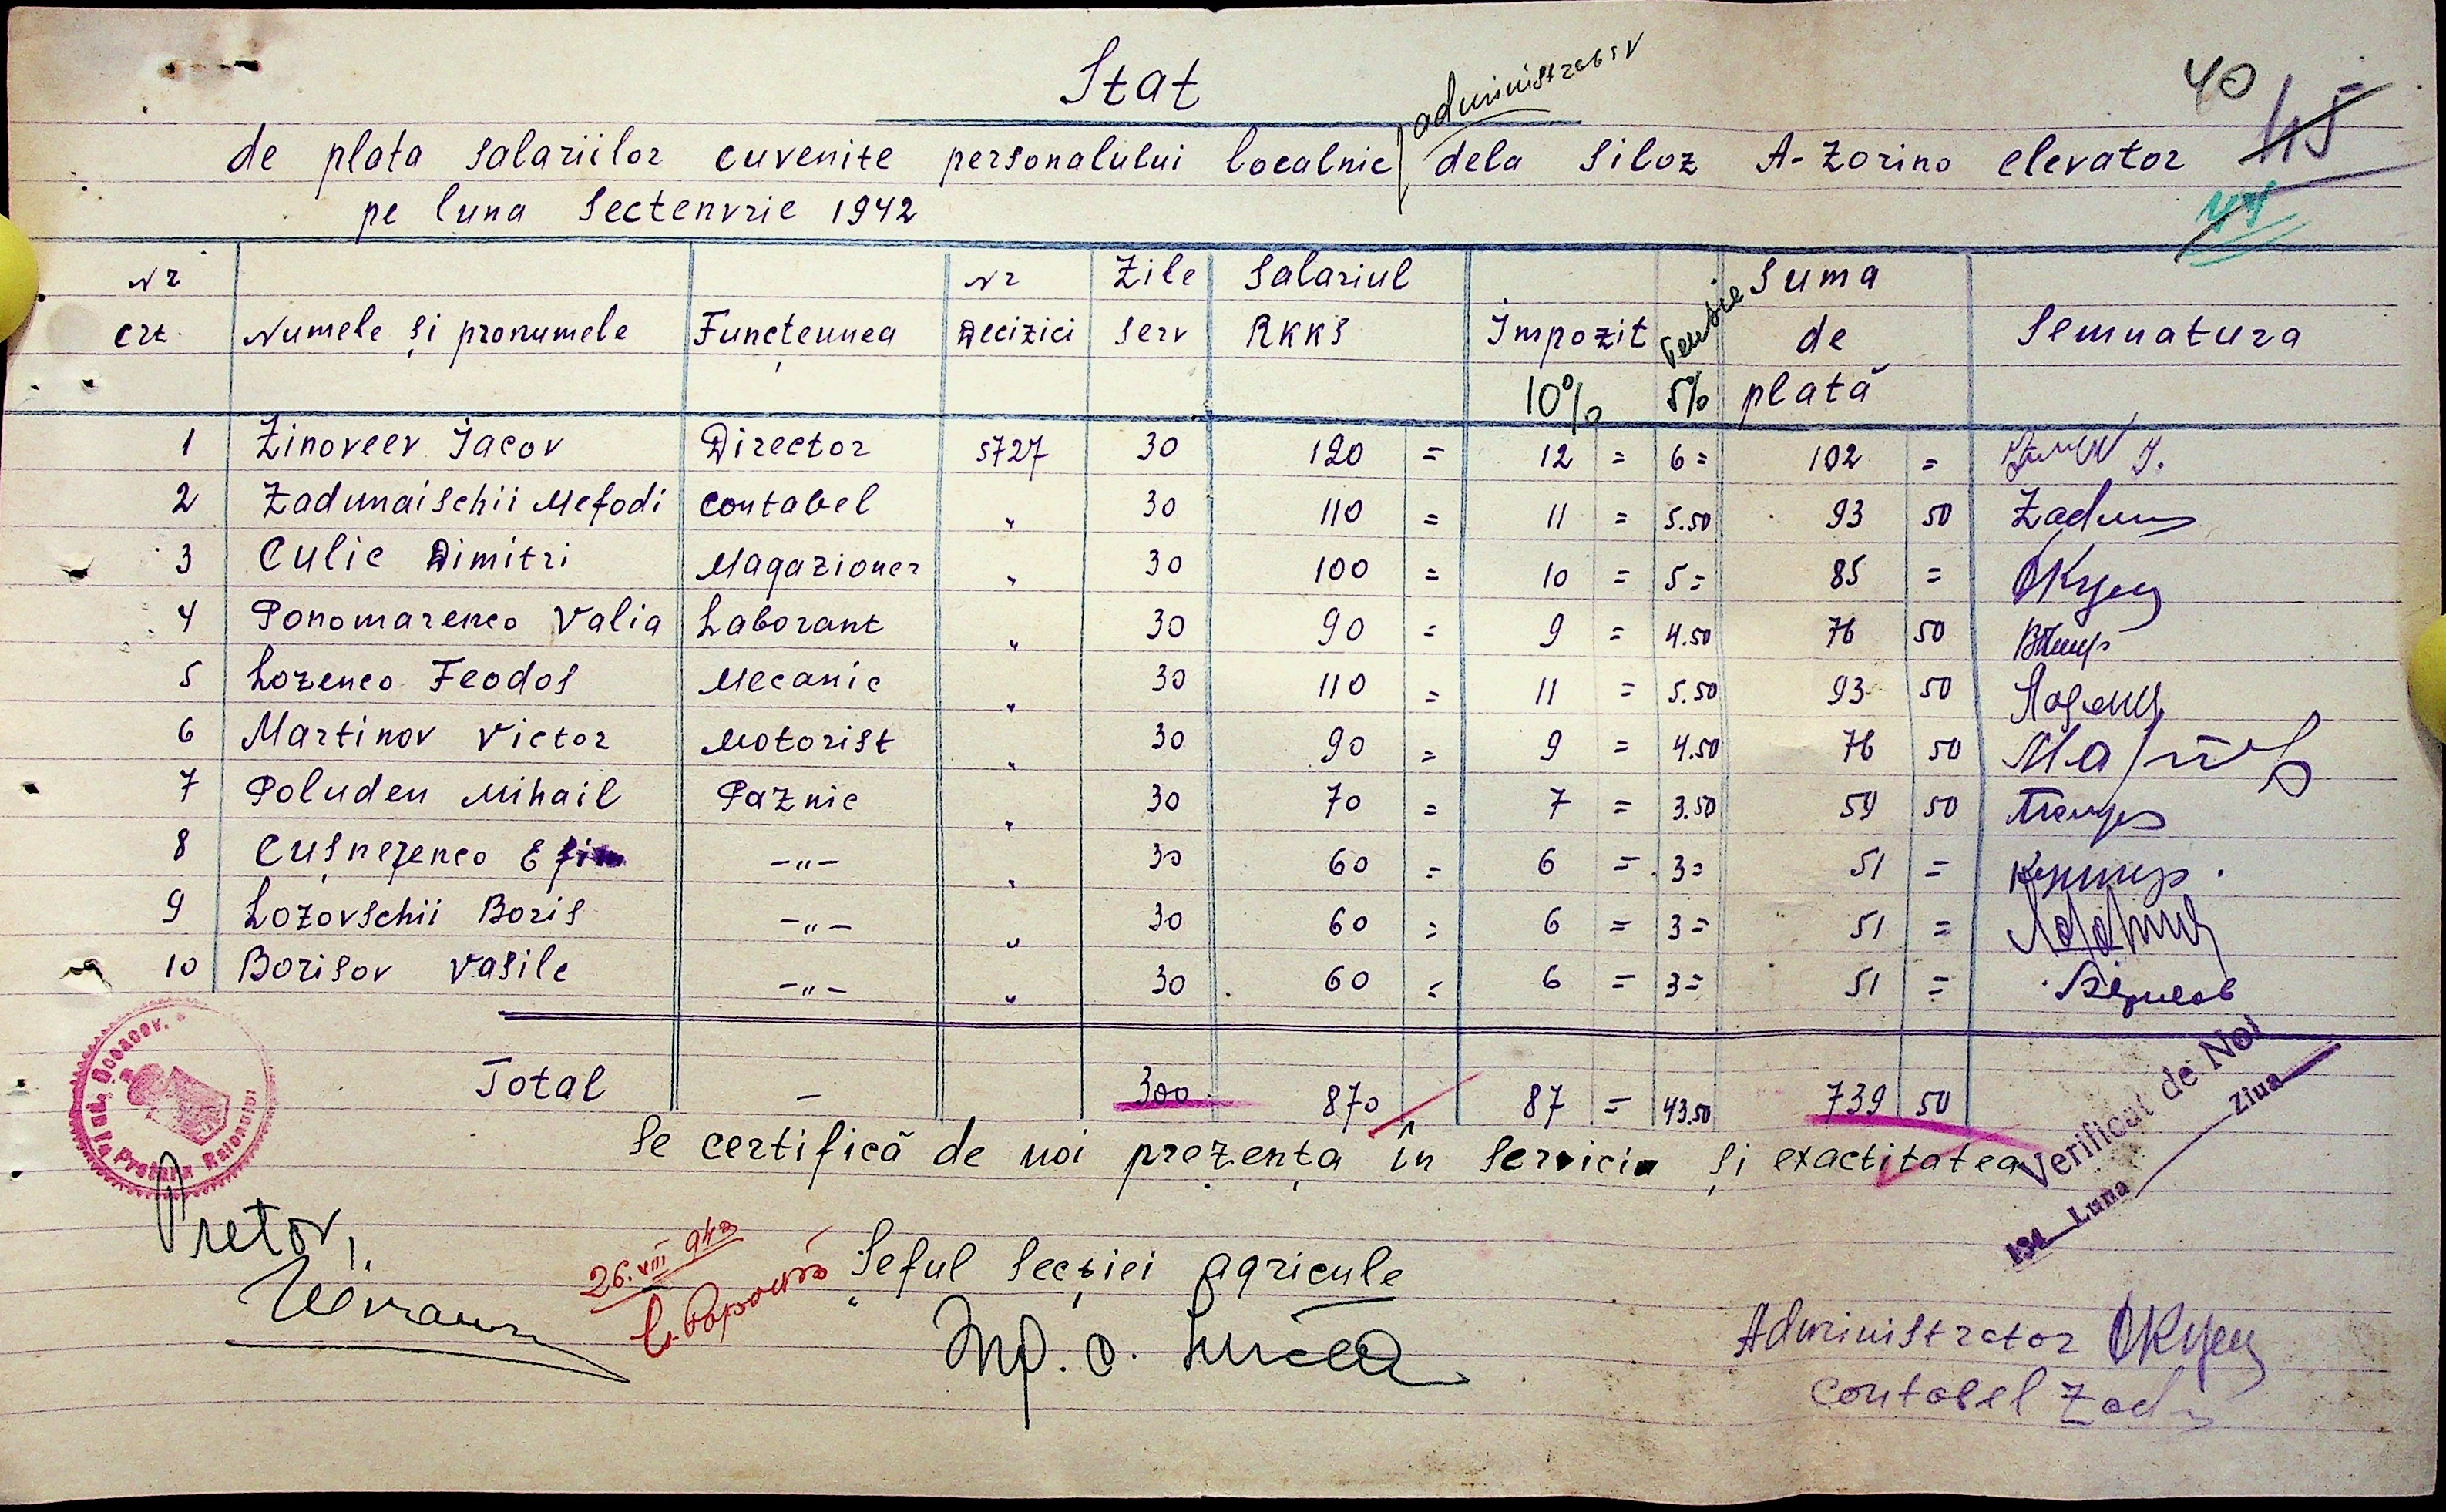 Stat
administrativ
40
45
de plata salariilor cuvenite personalului localnic dela siloz A-Zorino elevator
pe luna Sectenvrie 1942
Nr crt Numele și pronumele Funcțeunea Nr Decizici Zile serv Salariul RKKS Impozit 10% Pensie 5% Suma de plată Semnatura
1 Zinoveev Iacov Director 5727 30 120 = 12 = 6 = 102 =
2 Zadunaischii Mefodi contabel „ 30 110 = 11 = 5.50 93 50 Zadun
3 Culic Dimitri Magazioner „ 30 100 = 10 = 5 = 85 =
4 Ponomarenco Valia Laborant „ 30 90 = 9 = 4.50 76 50
5 Lozenco Feodos Mecanic „ 30 110 = 11 = 5.50 93 50
6 Martinov Victor Motorist „ 30 90 = 9 = 4.50 76 50
7 Poluden Mihail Paznic „ 30 70 = 7 = 3.50 59 50
8 Cușnerenco Efim -„- „ 30 60 = 6 = 3 = 51 =
9 Lozovschii Boris -„- „ 30 60 = 6 = 3 = 51 =
10 Borisov Vasile -„- „ 30 60 = 6 = 3 = 51 =
Total - 300 870 87 = 43.50 739 50
Se certifică de noi prezența în serviciu și exactitatea
Verificat de Noi
194 Luna Ziua
Pretura Raionului
Pretor,
26.VIII 942
Seful Secției agricule
Administrator
Contabel Zad